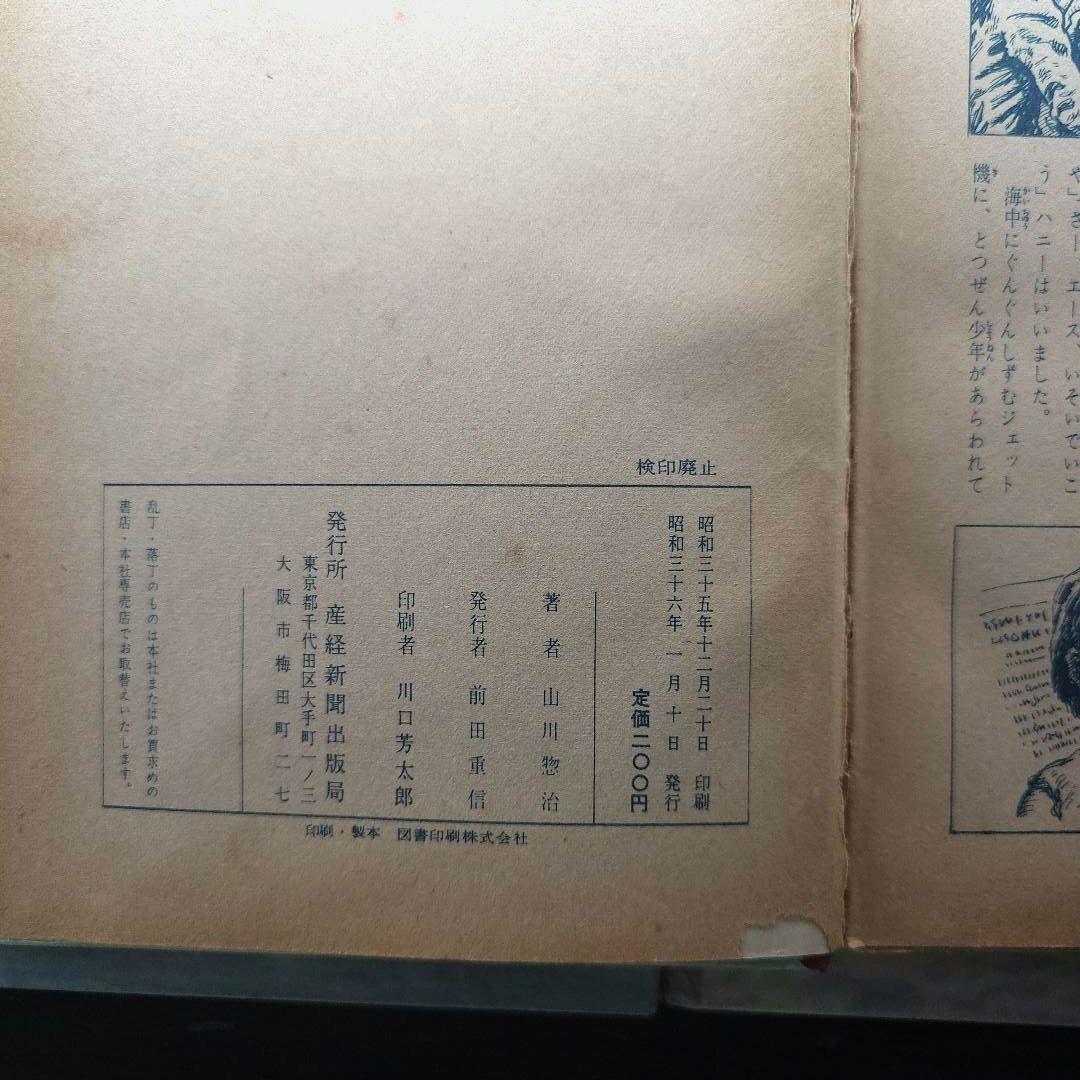 や」さー、エース、いそいでいこ
う」ハニーはいいました。
海中にぐんぐんしずむジェット
機に、とつぜん少年があらわれて
検印廃止
昭和三十五年十二月二十日 印刷
昭和三十六年 一 月 十 日 発行
定価二〇〇円
著者 山川惣治
発行者 前田重信
印刷者 川口芳太郎
発行所 産経新聞出版局
東京都千代田区大手町一ノ三
大阪市梅田町二七
乱丁・落丁のものは本社またはお買求めの
書店・本社専売店でお取替えいたします。
印刷・製本 図書印刷株式会社